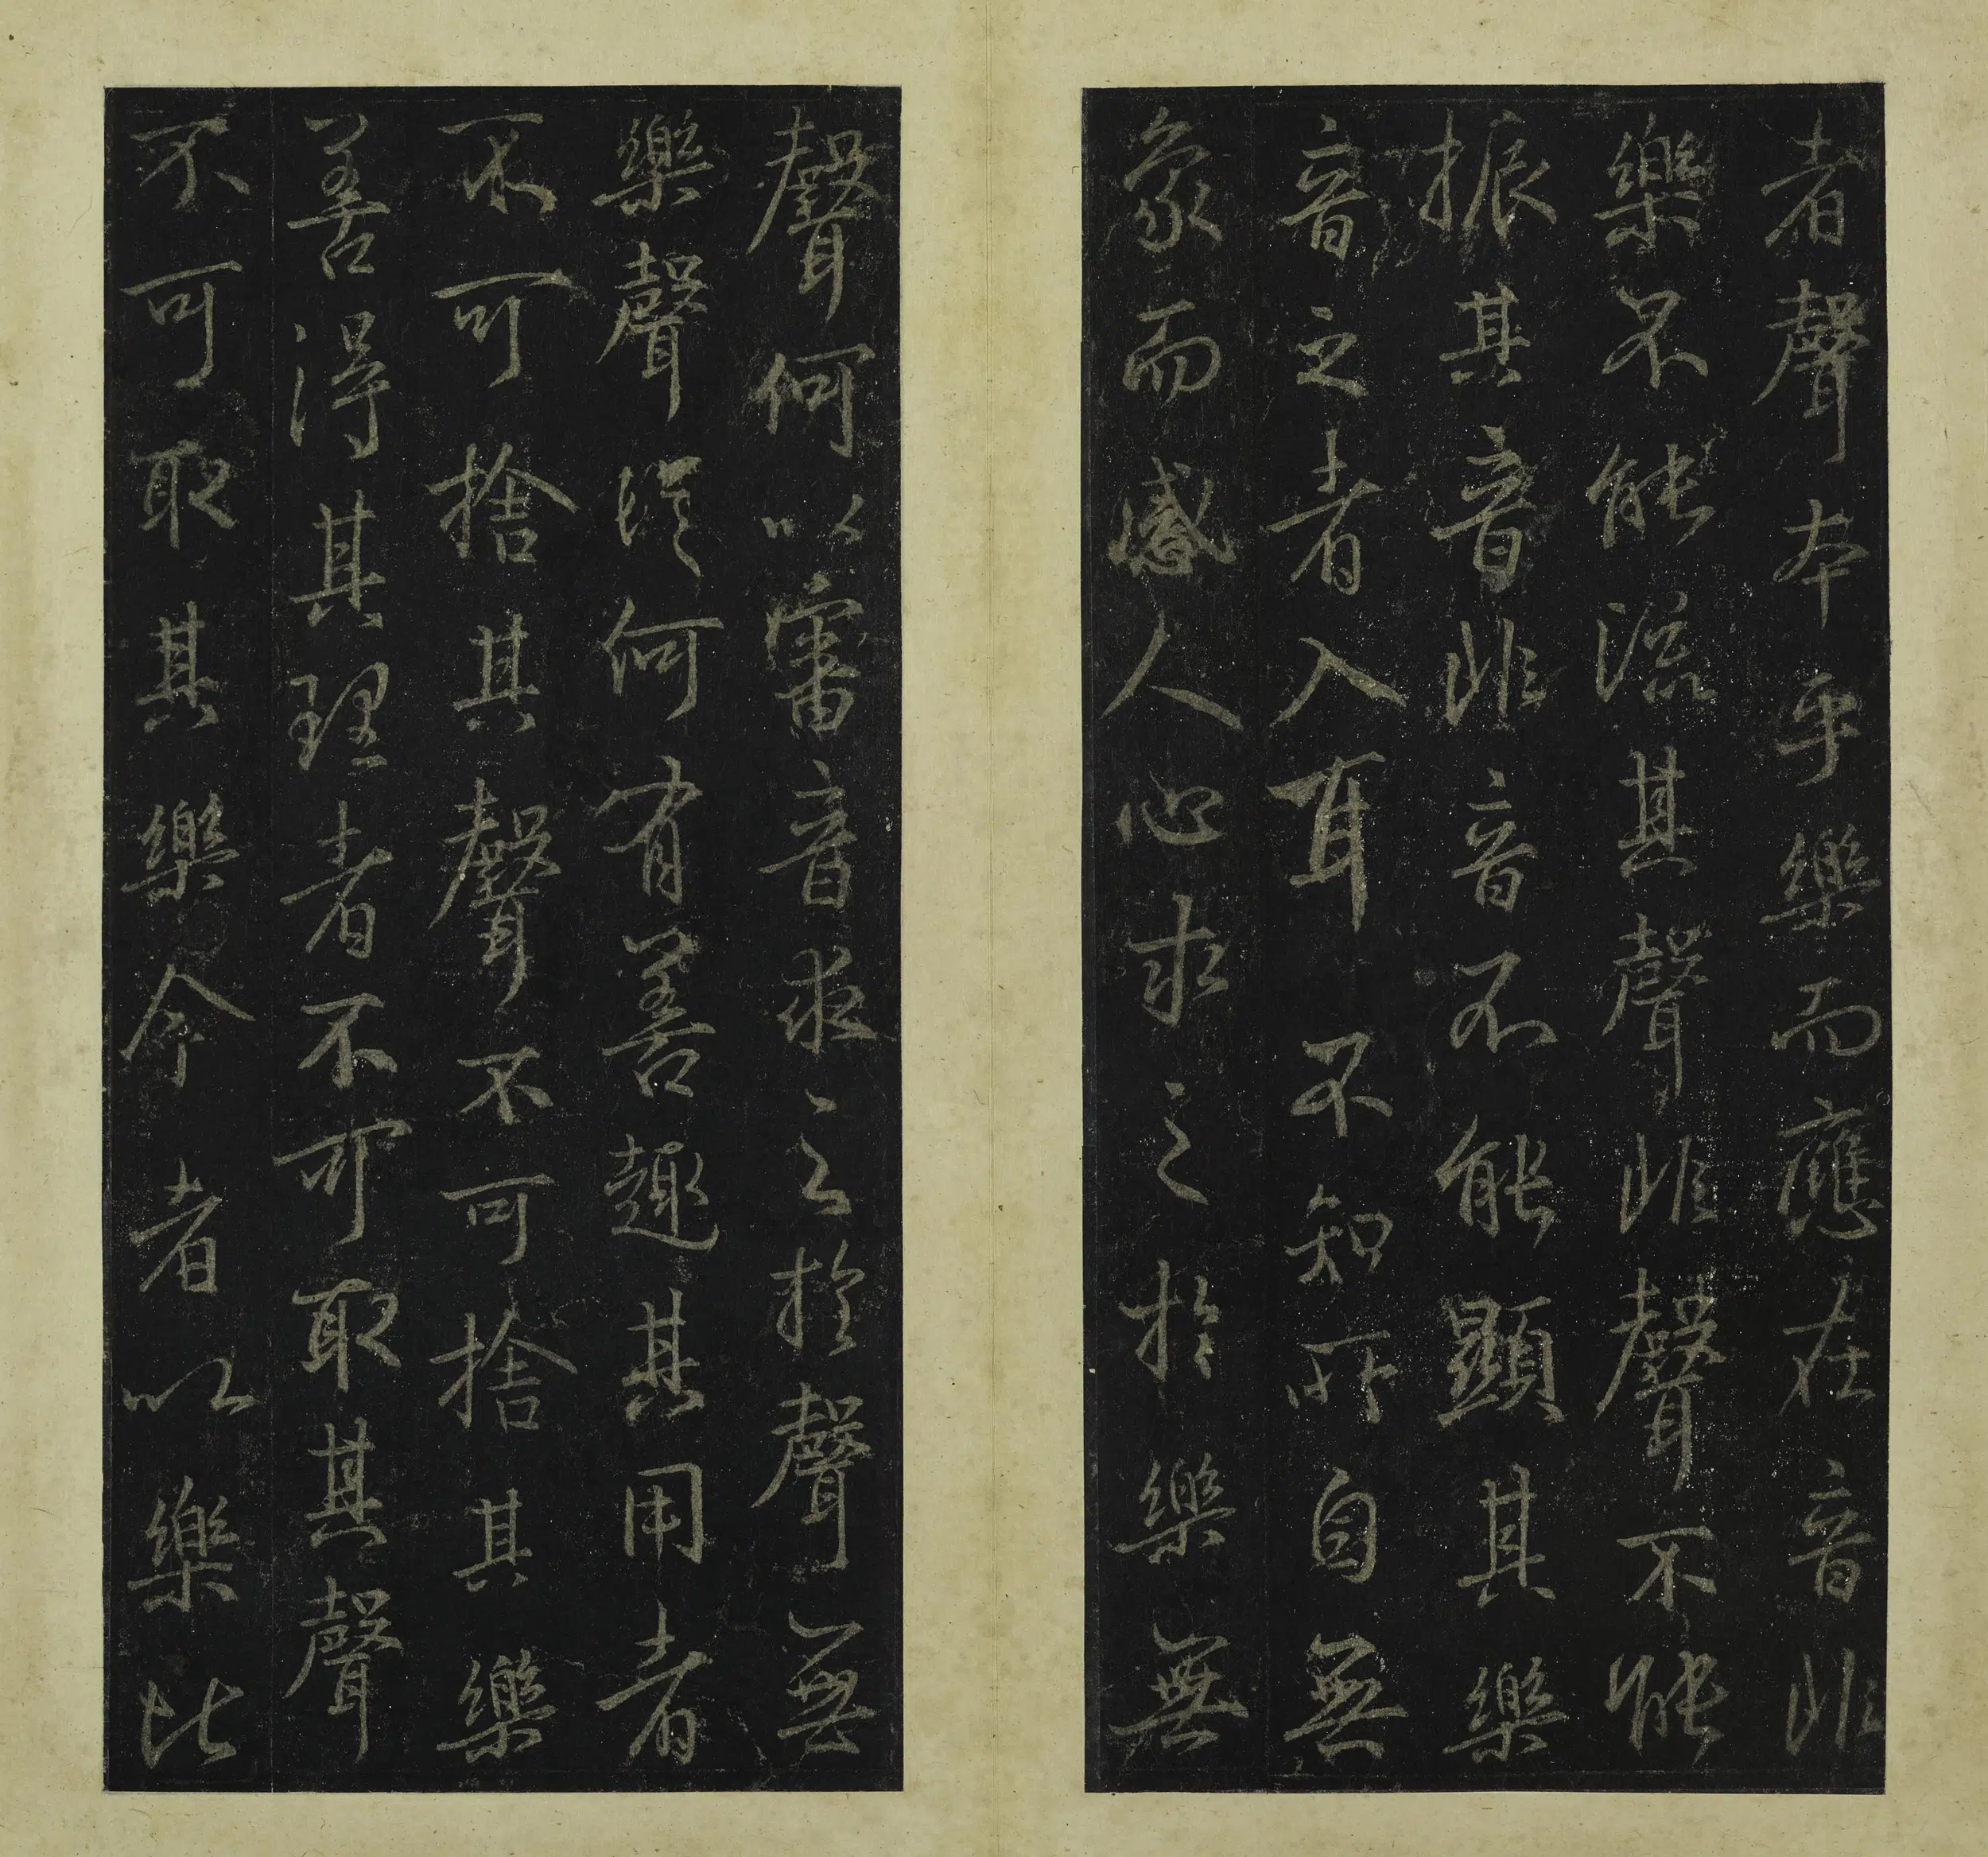 者聲本乎樂而應在音非
樂不能流其聲非聲不能
振其音非音不能顯其樂
音之者入耳不知所自無
象而感人心求之於樂無
聲何以審音求之於聲無
樂聲從何有善趣其用者
不可捨其聲不可捨其樂
善得其理者不可取其聲
不可取其樂今者以樂比